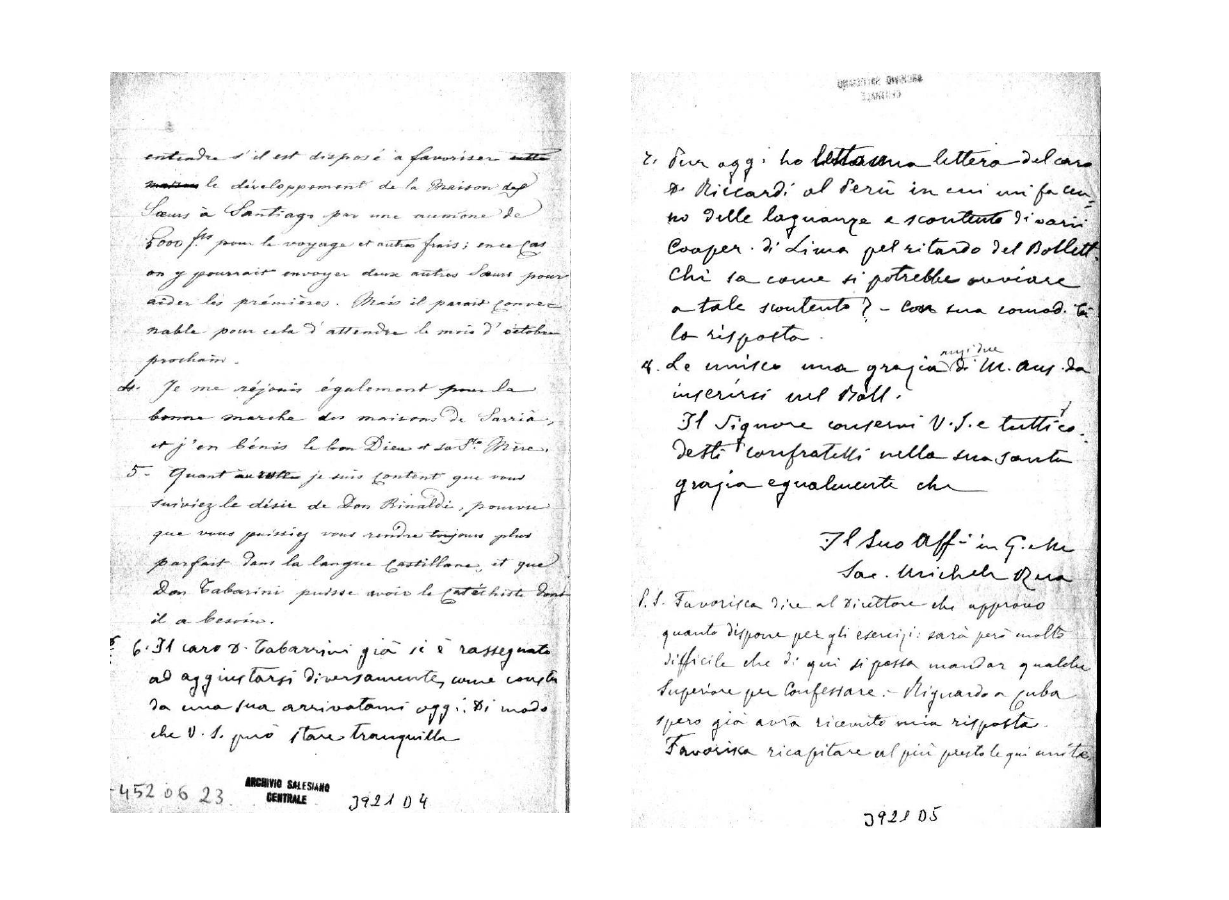 entendre s'il est disposé a favoriser cette
maison le développement de la Maison des
Sœurs à Santiago par une aumône de
5000 f.cs pour le voyage et autres frais; en ce cas
on y pourrait envoyer deux autres Sœurs pour
aider les prémières. Mais il parait conve-
nable pour cela d'attendre le mois d'octobre
prochain.
4. Je me réjouis également pour la
bonne marche des maisons de Sarrià,
et j'en bénis le bon Dieu et sa S.te Mère.
5- Quant au reste je suis content que vous
suiviez le désir de Don Rinaldi, pourvu
que vous puissiez vous rendre toujours plus
parfait dans la langue Castillane, et que
Don Tabarini puisse avoir le Catéchiste dont
il a besoin.
6. Il caro D. Tabarrini già si è rassegnato
ad aggiustarsi diversamente, come consta
da una sua arrivatami oggi. Di modo
che V. S. può stare tranquilla
452 06 23
ARCHIVIO SALESIANO
CENTRALE
3921 D4
ARCHIVIO SALESIANO
CENTRALE
7. Pur oggi ho letta una lettera del caro
D. Riccardi al Perù in cui mi fa cen-
no delle lagnanze e scontento di varii
Cooper. di Lima pel ritardo del Bollett.
Chi sa come si potrebbe ovviare
a tale scontento? - Con sua comodità
la risposta.
8. Le unisco una grazia di M. Aus. da
inserirsi nel Boll.
Il Signore conservi V. S. e tutti co-
desti confratelli nella sua santa
grazia egualmente che
Il Suo Aff. in G. e M.
Sac. Michele Rua
P.S. Favorisca dire al Direttore che approvo
quanto dispone per gli esercizi: sarà però molto
difficile che di qui si possa mandar qualche
Superiore per Confessare. - Riguardo a Cuba
spero già avrà ricevuto mia risposta.
Favorisca ricapitare al più presto le qui unite
3921 D5